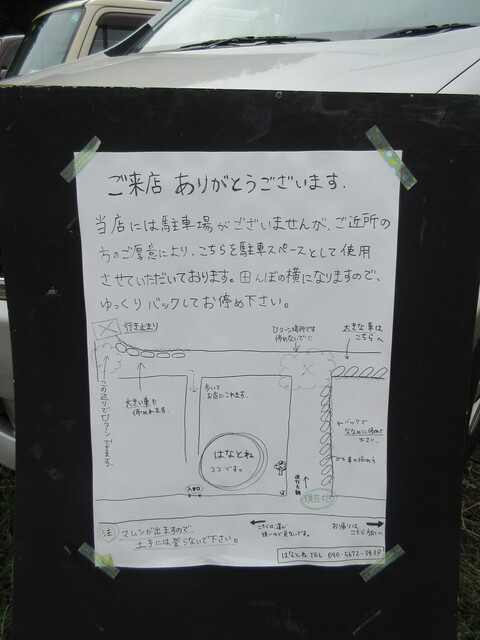 ご来店 ありがとうございます.
当店には駐車場がございませんが、ご近所の
方のご厚意により、こちらを駐車スペースとして使用
させていただいております。田んぼの横になりますので、
ゆっくりバックしてお停め下さい。
行き止まり
Uターン場所です
停めないで!!
大きな車は
こちらへ
この辺りでUターンできます。
大きい車も
停められます。
歩いて
お店にこれます。
はなとね
ココです。
←バックで
ななめに停めて
下さい。
入口
現在地
注 マムシが出ますので
土手には登らないで下さい。
お帰りは
こちら方向へ
はなとね TEL 090-5672-3439